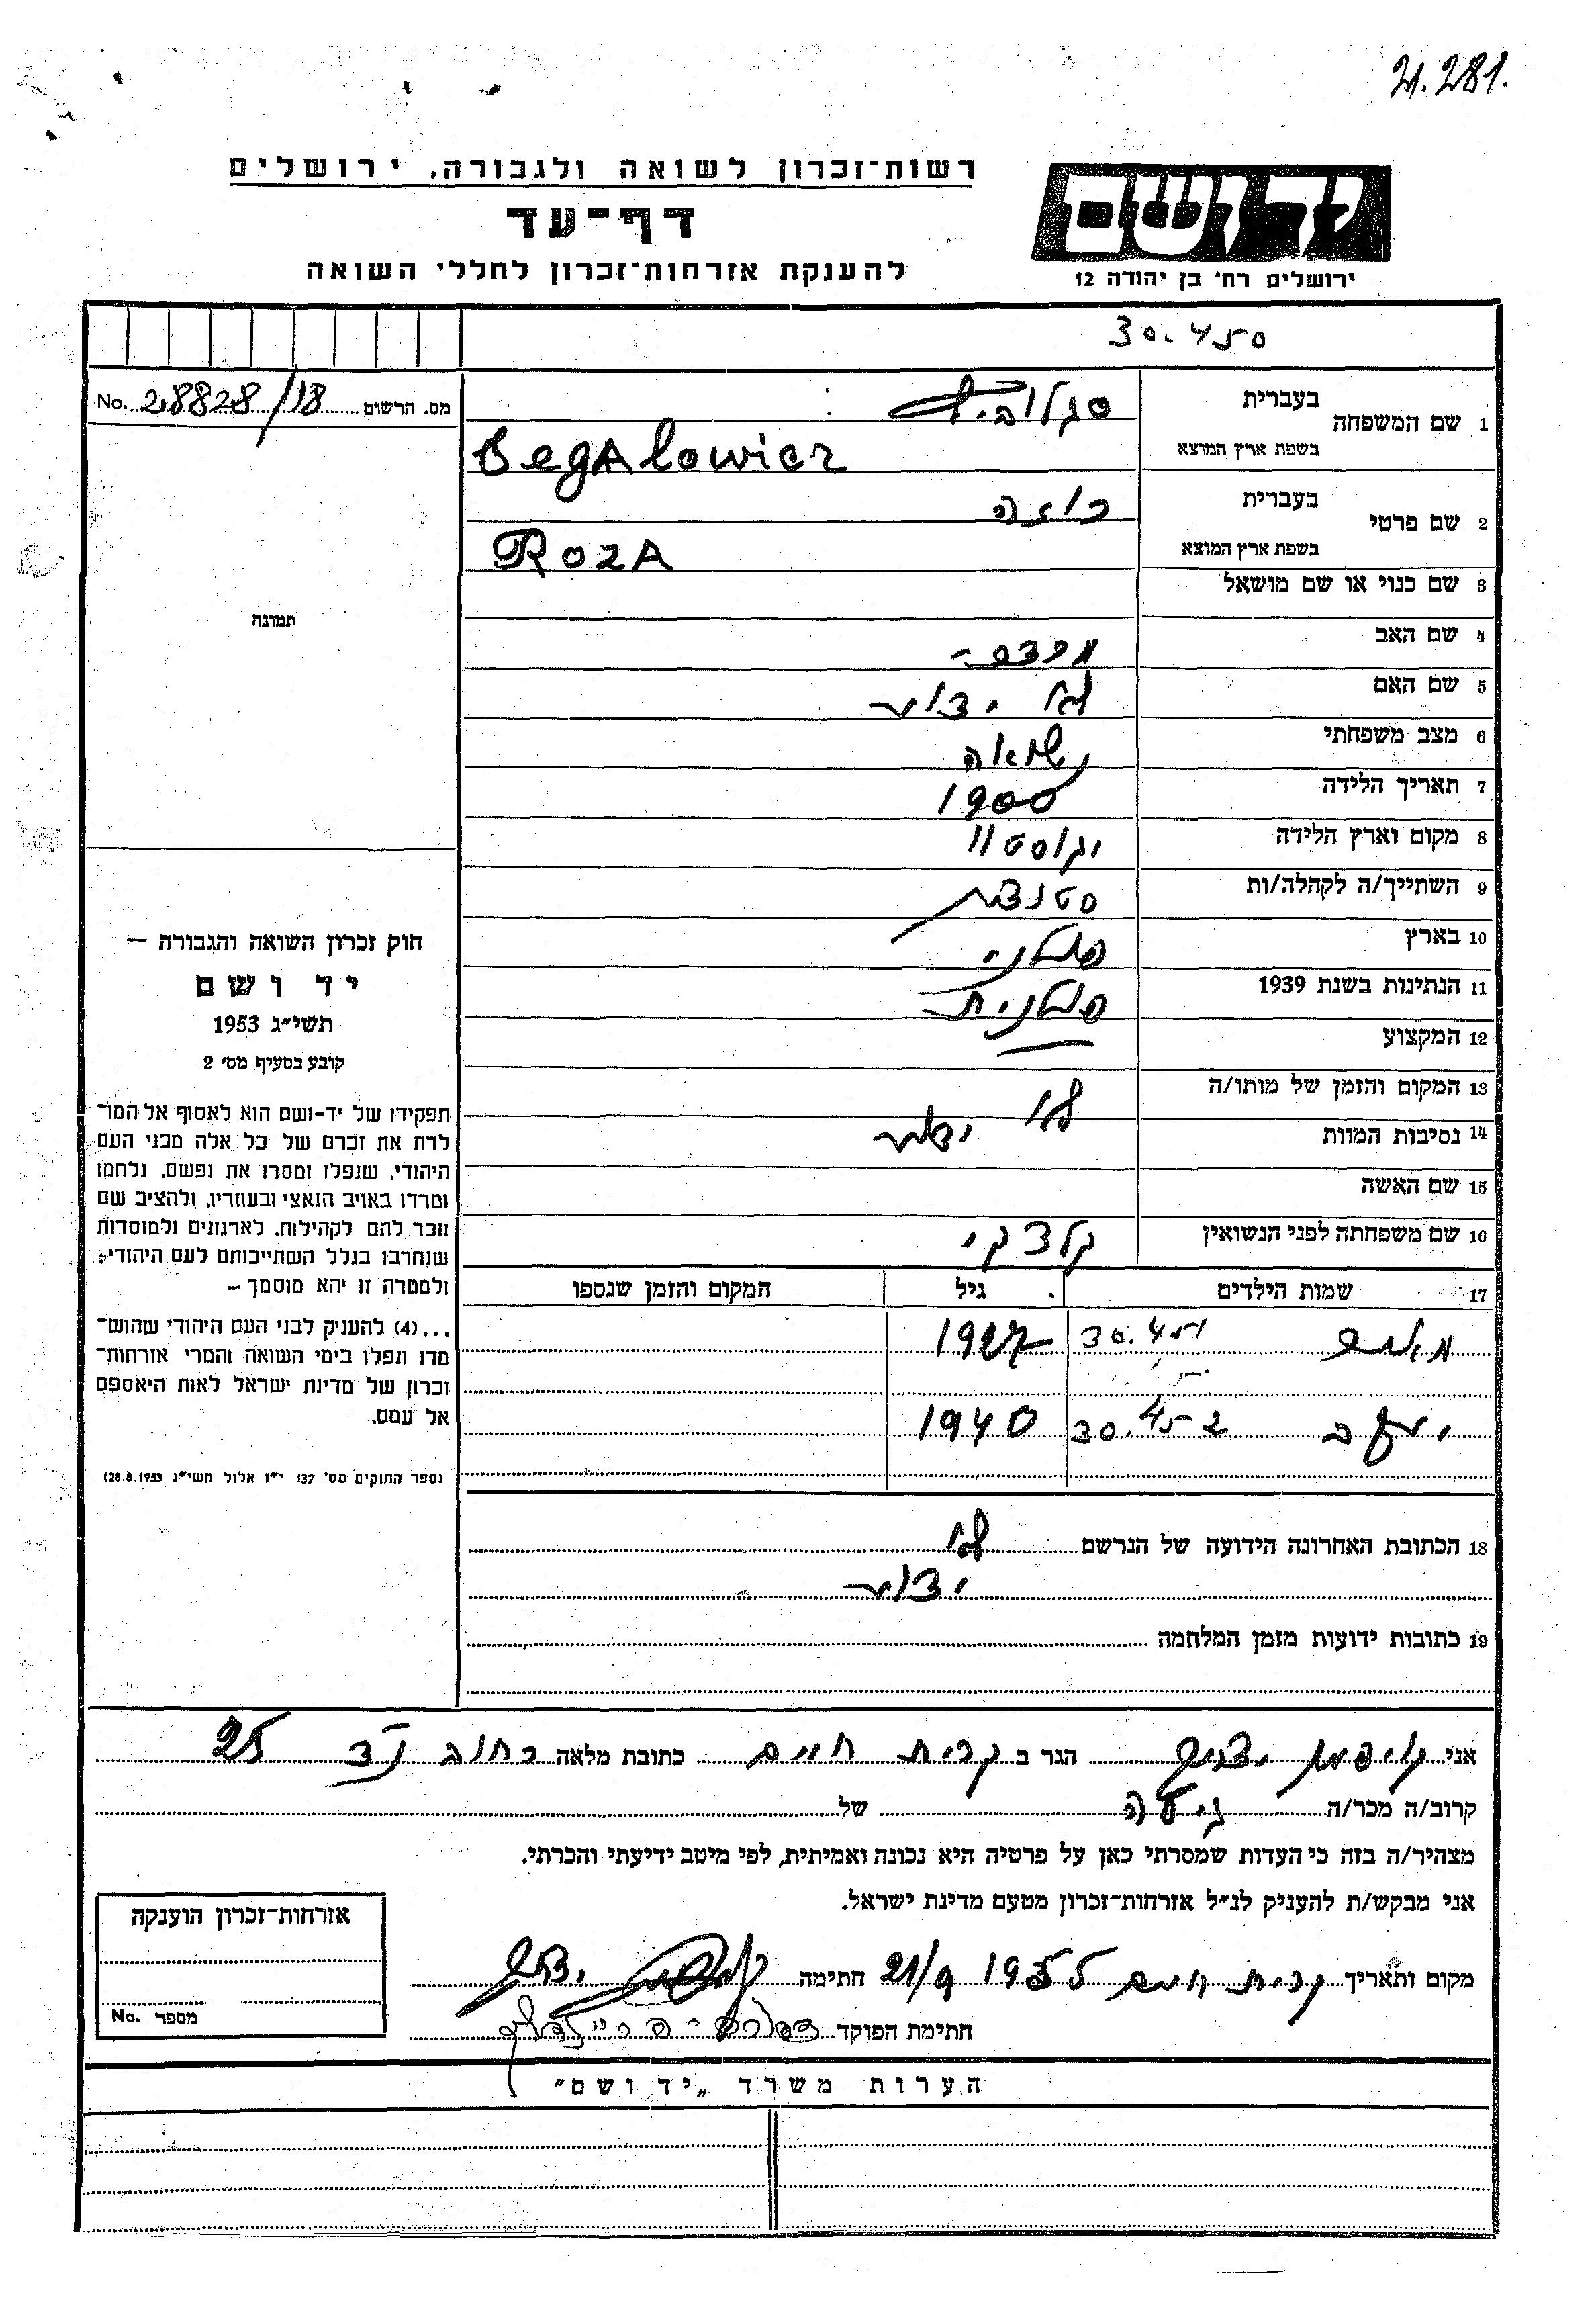 21.281.
יד ושם
ירושלים רח' בן יהודה 12
רשות-זכרון לשואה ולגבורה, ירושלים
דף-עד
להענקת אזרחות-זכרון לחללי השואה
30.450
מס. הרשום 28828/18 No.
1 שם המשפחה בעברית סגלוביץ
בשפת ארץ המוצא SegAlowicz
2 שם פרטי בעברית רוזה
בשפת ארץ המוצא RozA
3 שם כנוי או שם מושאל
4 שם האב מרדכי
5 שם האם לא ידוע
6 מצב משפחתי נשואה
7 תאריך הלידה 1900
8 מקום וארץ הלידה
9 השתייך/ה לקהלה/ות
10 בארץ פולני
11 הנתינות בשנת 1939 פולנית
12 המקצוע
13 המקום והזמן של מותו/ה לא
14 נסיבות המוות ידוע
15 שם האשה
16 שם משפחתה לפני הנשואין
17 שמות הילדים גיל המקום והזמן שנספו
30.451 1927
יעקב 30.452 1940
18 הכתובת האחרונה הידועה של הנרשם לא
ידוע
19 כתובות ידועות מזמן המלחמה
תמונה
חוק זכרון השואה והגבורה —
יד ושם
תשי"ג 1953
קובע בסעיף מס' 2
תפקידו של יד-ושם הוא לאסוף אל המו-
לדת את זכרם של כל אלה מבני העם
היהודי, שנפלו ומסרו את נפשם, נלחמו
ומרדו באויב הנאצי ובעוזריו, ולהציב שם
וזכר להם לקהילות, לארגונים ולמוסדות
שנחרבו בגלל השתייכותם לעם היהודי;
ולמטרה זו יהא מוסמך –
...(4) להעניק לבני העם היהודי שהוש-
מדו ונפלו בימי השואה והמרי אזרחות-
זכרון של מדינת ישראל לאות היאספם
אל עמם.
(ספר החוקים מס' 132 י"ז אלול תשי"ג 28.8.1953)
אני הגר ב קרית חיים כתובת מלאה רחוב 25
קרוב/ה מכר/ה גיסה של
מצהיר/ה בזה כי העדות שמסרתי כאן על פרטיה היא נכונה ואמיתית, לפי מיטב ידיעתי והכרתי.
אני מבקש/ת להעניק לנ"ל אזרחות-זכרון מטעם מדינת ישראל.
מקום ותאריך קרית חיים 21/9 1955 חתימה
חתימת הפוקד
אזרחות-זכרון הוענקה
מספר No.
הערות משרד „יד ושם"